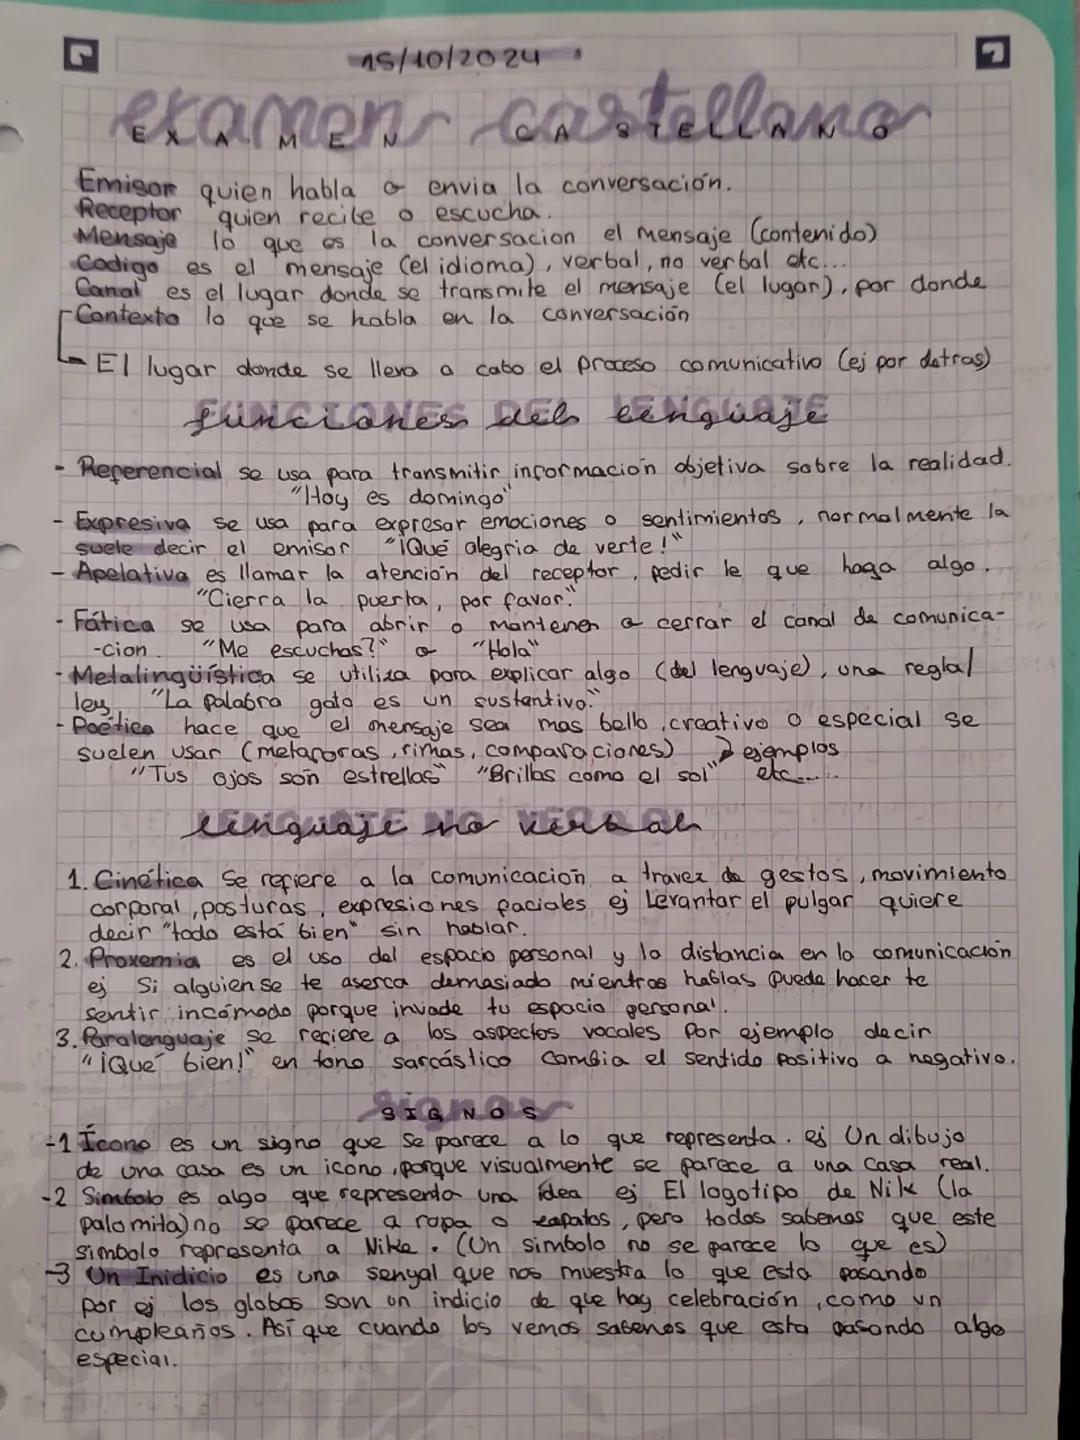 15/10/2024
examen castellano
EXAMEN CASTELLANO
Emisor quien habla o envia la conversación.
Receptor quien recibe o escucha.
Mensaje lo que es la conversacion el mensaje (contenido)
Codigo es el mensaje (el idioma), verbal, no verbal etc...
Canal es el lugar donde se transmite el mensaje (el lugar), por donde
Contexto lo que se habla en la conversación
El lugar donde se lleva a cabo el proceso comunicativo (ej por detras)
FUNCIONES DEL LENGUAJE
funciones del lenguaje
- Referencial se usa para transmitir información objetiva sobre la realidad.
"Hoy es domingo"
- Expresiva se usa para expresar emociones o sentimientos, normalmente la
suele decir el emisor "¡Qué alegria de verte!"
- Apelativa es llamar la atención del receptor, pedir le que haga algo.
"Cierra la puerta, por favor."
- Fática se usa para abrir o mantener o cerrar el canal de comunica-
-cion. "Me escuchas?" o "Hola"
- Metalingüística se utiliza para explicar algo (del lenguaje), una regla/
ley, "La palabra gato es un sustantivo."
- Poética hace que el mensaje sea mas bello, creativo o especial se
suelen usar (metaforas, rimas, comparaciones) → ejemplos
"Tus ojos son estrellas" "Brillas como el sol" etc.....
LENGUAJE NO VERBAL
lenguaje no verbal
1. Cinética Se refiere a la comunicación a travez de gestos, movimiento
corporal, posturas, expresiones faciales ej Levantar el pulgar quiere
decir "todo está bien" sin hablar.
2. Proxemia es el uso del espacio personal y la distancia en la comunicación
ej Si alguien se te aserca demasiado mientras hablas puede hacer te
sentir incómodo porque invade tu espacio personal.
3. Paralenguaje se refiere a los aspectos vocales Por ejemplo decir
"¡Qué bien!" en tono sarcástico cambia el sentido positivo a negativo.
signos
SIGNOS
-1 Ícono es un signo que se parece a lo que representa. ej Un dibujo
de una casa es un icono, porque visualmente se parece a una casa real.
-2 Simbolo es algo que representa una idea ej El logotipo de Nik (la
palomita) no se parece a ropa o zapatos, pero todos sabemos que este
simbolo representa a Nike. (Un simbolo no se parece lo que es)
-3 Un Inidicio es una senyal que nos muestra lo que esta pasando
por ej los globos son un indicio de que hay celebración, como un
cumpleaños. Así que cuando los vemos sabemos que esta pasando algo
especial.